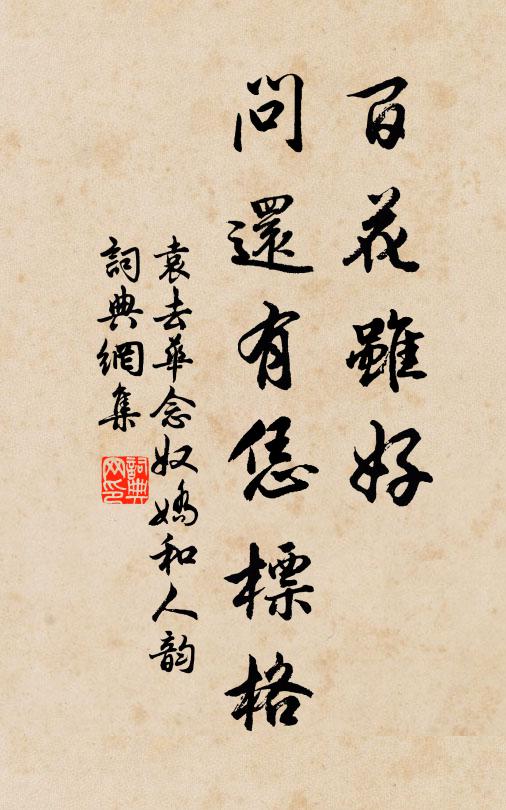 百花雖好
問還有恁標格
袁去華念奴嬌和人韵
詞典網集
詞典网印